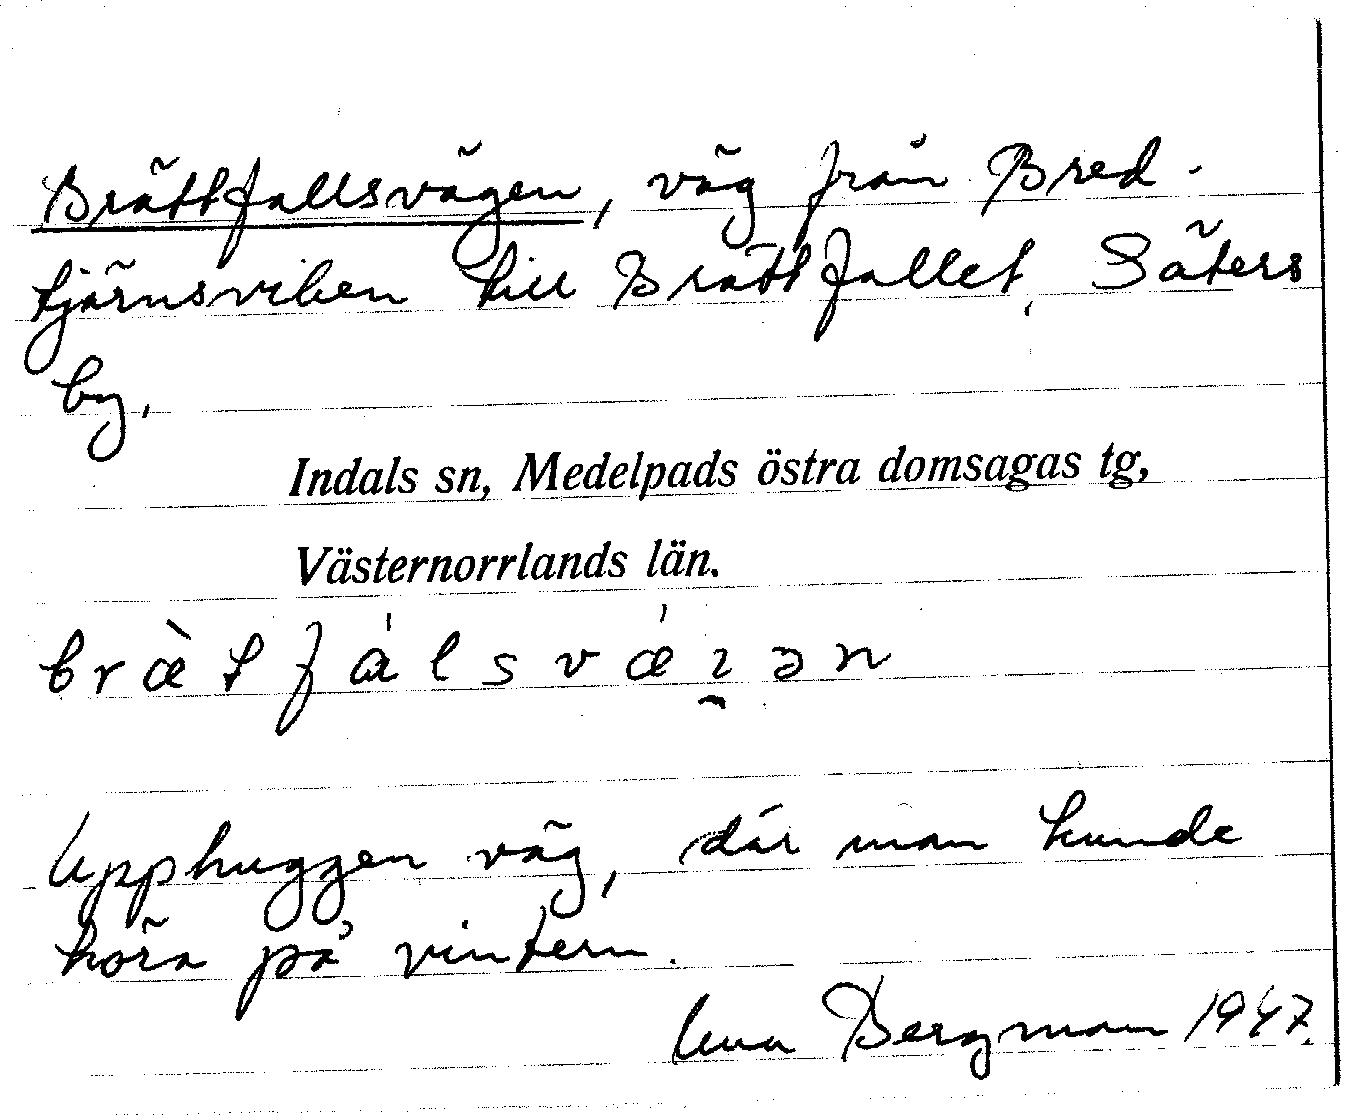 Brättfallsvägen, väg från Bred-
tjärnsviken till Brättfallet, Säters
by.
Indals sn, Medelpads östra domsagas tg,
Västernorrlands län.
bræ̀tfálsvǽɪ̯ən
Upphuggen väg, där man kunde
köra på vintern.
Bergman 1947.